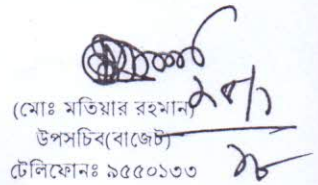 (মোঃ মতিয়ার রহমান)
উপসচিব(বাজেট)
টেলিফোনঃ ৯৫৫০১৩৩